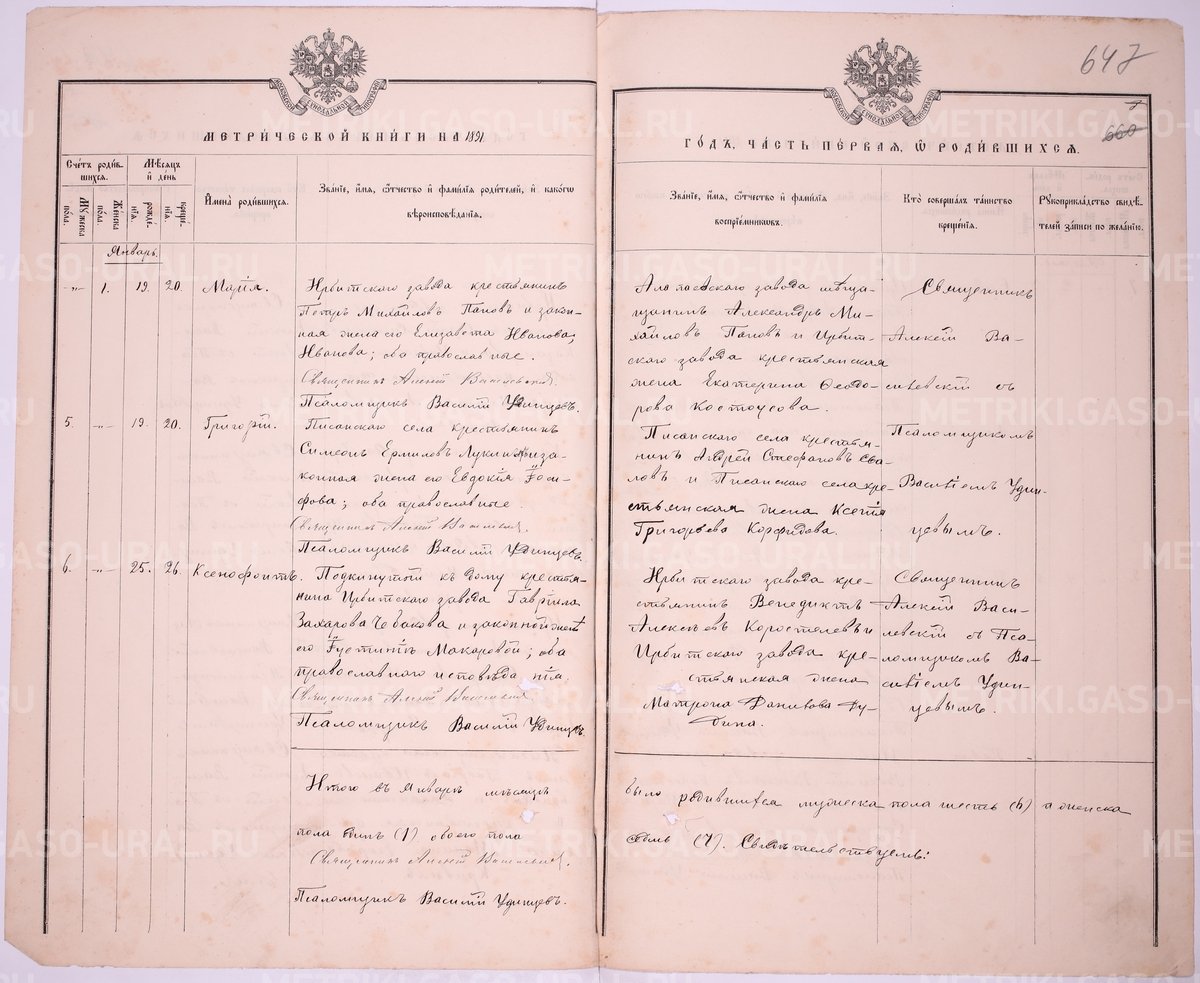 647
МЕТРИЧЕСКОЙ КНИГИ НА 1891
ГОДЪ, ЧАСТЬ ПЕРВАЯ, Ѿ РОДИВШИХСЯ.
660
Счетъ родившихся.
Мужеска пола.
Женска пола.
Мѣсяцъ и день
рожденія.
крещенія.
Имена родившихся.
Званіе, имя, отчество и фамилія родителей, и какого
вѣроисповѣданія.
Званіе, имя, отчество и фамилія
воспріемниковъ.
Кто совершалъ таинство
крещенія.
Рукоприкладство свидѣтелей записи по желанію.
Январь.
-„- 1. 19. 20. Марія.
Ирбитскаго завода крестьянинъ
Петръ Михайловъ Паповъ и закон-
ная жена его Елизавета Иванова
Иванова; оба православные.
Священникъ Алексій Василевскій.
Псаломщикъ Василій Удинцевъ.
Алапаевскаго завода мѣща-
нинъ Александръ Ми-
хайловъ Паповъ и Ирбит-
скаго завода крестьянская
жена Екатерина Ѳеодо-
рова Костоусова.
Священникъ
Алексій Ва-
силевскій съ
5. -„- 19. 20. Григорій.
Писанскаго села крестьянинъ
Симеонъ Ермиловъ Лукинъ и за-
конная жена его Евдокія Іоси-
фова; оба православные.
Священникъ Алексій Василевскій.
Псаломщикъ Василій Удинцевъ.
Писанскаго села крестья-
нинъ Андрей Стефановъ Сва-
ловъ и Писанскаго села кре-
стьянская жена Ксенія
Григорьева Корфидова.
Псаломщикомъ
Василіемъ Удин-
цевымъ.
6. -„- 25. 26. Ксенофонтъ.
Подкинутый къ дому крестья-
нина Ирбитскаго завода Гавріила
Захарова Чебакова и законной жены
его Іустинѣ Макаровой; оба
православнаго исповѣданія.
Священникъ Алексій Василевскій
Псаломщикъ Василій Удинцевъ.
Ирбитскаго завода кре-
стьянинъ Венедиктъ
Алексѣевъ Коростелевъ и
Ирбитскаго завода кре-
стьянская жена
Матрона Данилова Гу-
бина.
Священникъ
Алексій Васи-
левскій съ Пса-
ломщикомъ Ва-
силіемъ Удин-
цевымъ.
Итого въ Январѣ мѣсяцѣ
было родившихся мужеска пола шесть (6) и женска
пола одинъ (1) обоего пола
седмь (7). Свидѣтельствуемъ:
Священникъ Алексій Василевскій.
Псаломщикъ Василій Удинцевъ.
METRIKI.GASO-URAL.RU